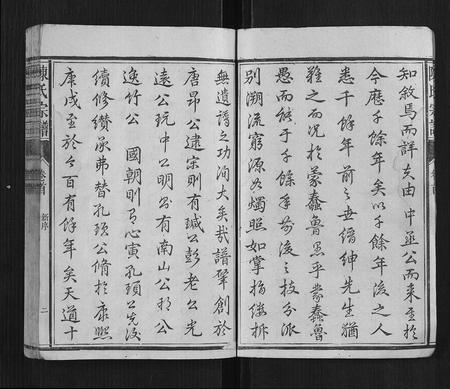 知敘焉而詳夫由中並公而来至於
今歷千餘年矣以千餘年後之人
悉千餘年前之世縉紳先生猶
難之而况於蒙蠢魯愚乎蒙蠢魯
愚而能于千餘年前後之枝分派
别溯流窮源如燭照如掌指縷柝
無遺譜之功洵大矣哉譜肇創於
唐昂公逮宗則有瑊公彭老公元
遠公玩中公明公有南山公和公
逸竹公 國朝則弓心寅孔頊公先後
續修纘承弗替孔頊公脩於康熙
庚戌至於今百有餘年矣天道十
陳氏宗譜
卷首
新序
二